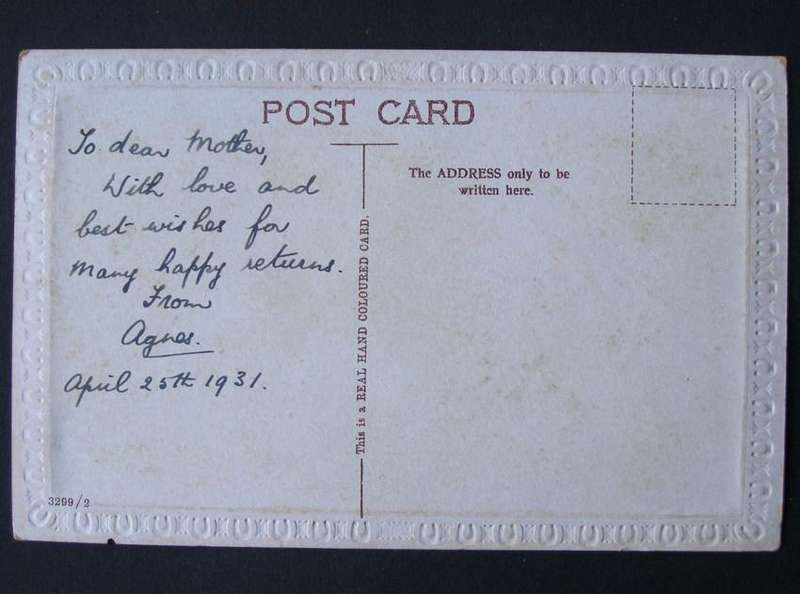 POST CARD
To dear Mother,
With love and
best wishes for
many happy returns.
From
Agnes.
April 25th 1931.
3299/2
This is a REAL HAND COLOURED CARD.
The ADDRESS only to be
written here.